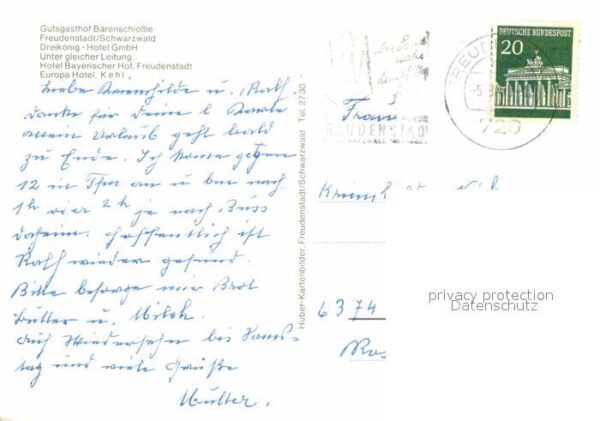 Gutsgasthof Bärenschlößle
Freudenstadt/Schwarzwald
Dreikönig - Hotel GmbH
Unter gleicher Leitung:
Hotel Bayerischer Hof, Freudenstadt
Europa Hotel, Kehl
Liebe u. Ralf
danke für deine l. Karte
mein Urlaub geht bald
zu Ende. Ich komme gegen
12 in Ffm an u bin nach
1h oder 2h je nach Buss
daheim. hoffentlich ist
Ralf wieder gesund.
Bitte besorge mir Brot
Butter u. Milch.
Auf Wiedersehn bis Sams-
tag und viele Grüße
Mutter.
Huber-Kartenbilder, Freudenstadt/Schwarzwald Tel. 2730
DEUTSCHE BUNDESPOST
20
FREUD
729
REUDENSTAD
Frau
6374
privacy protection
Datenschutz